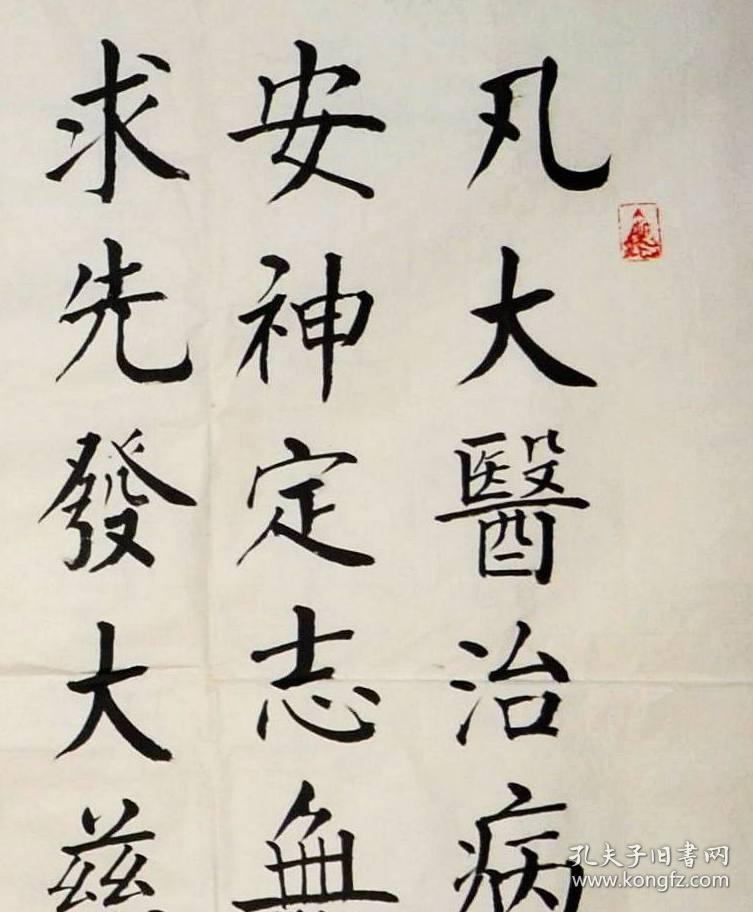 凡大醫治病
安神定志無
求先發大慈
孔夫子旧書网
www.kongfz.com